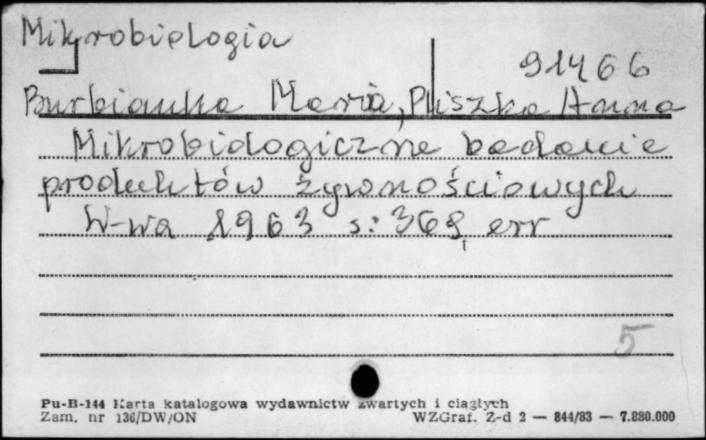 Mikrobiologia
91466
Burbianka Maria, Pliszka Anna
Mikrobiologiczne badanie
produktów żywnościowych
W-wa 1963 s: 368, err
5
Pu-B-144 Karta katalogowa wydawnictw zwartych i ciągłych
Zam. nr 136/DW/ON WZGraf. Z-d 2 — 844/83 — 7.880.000